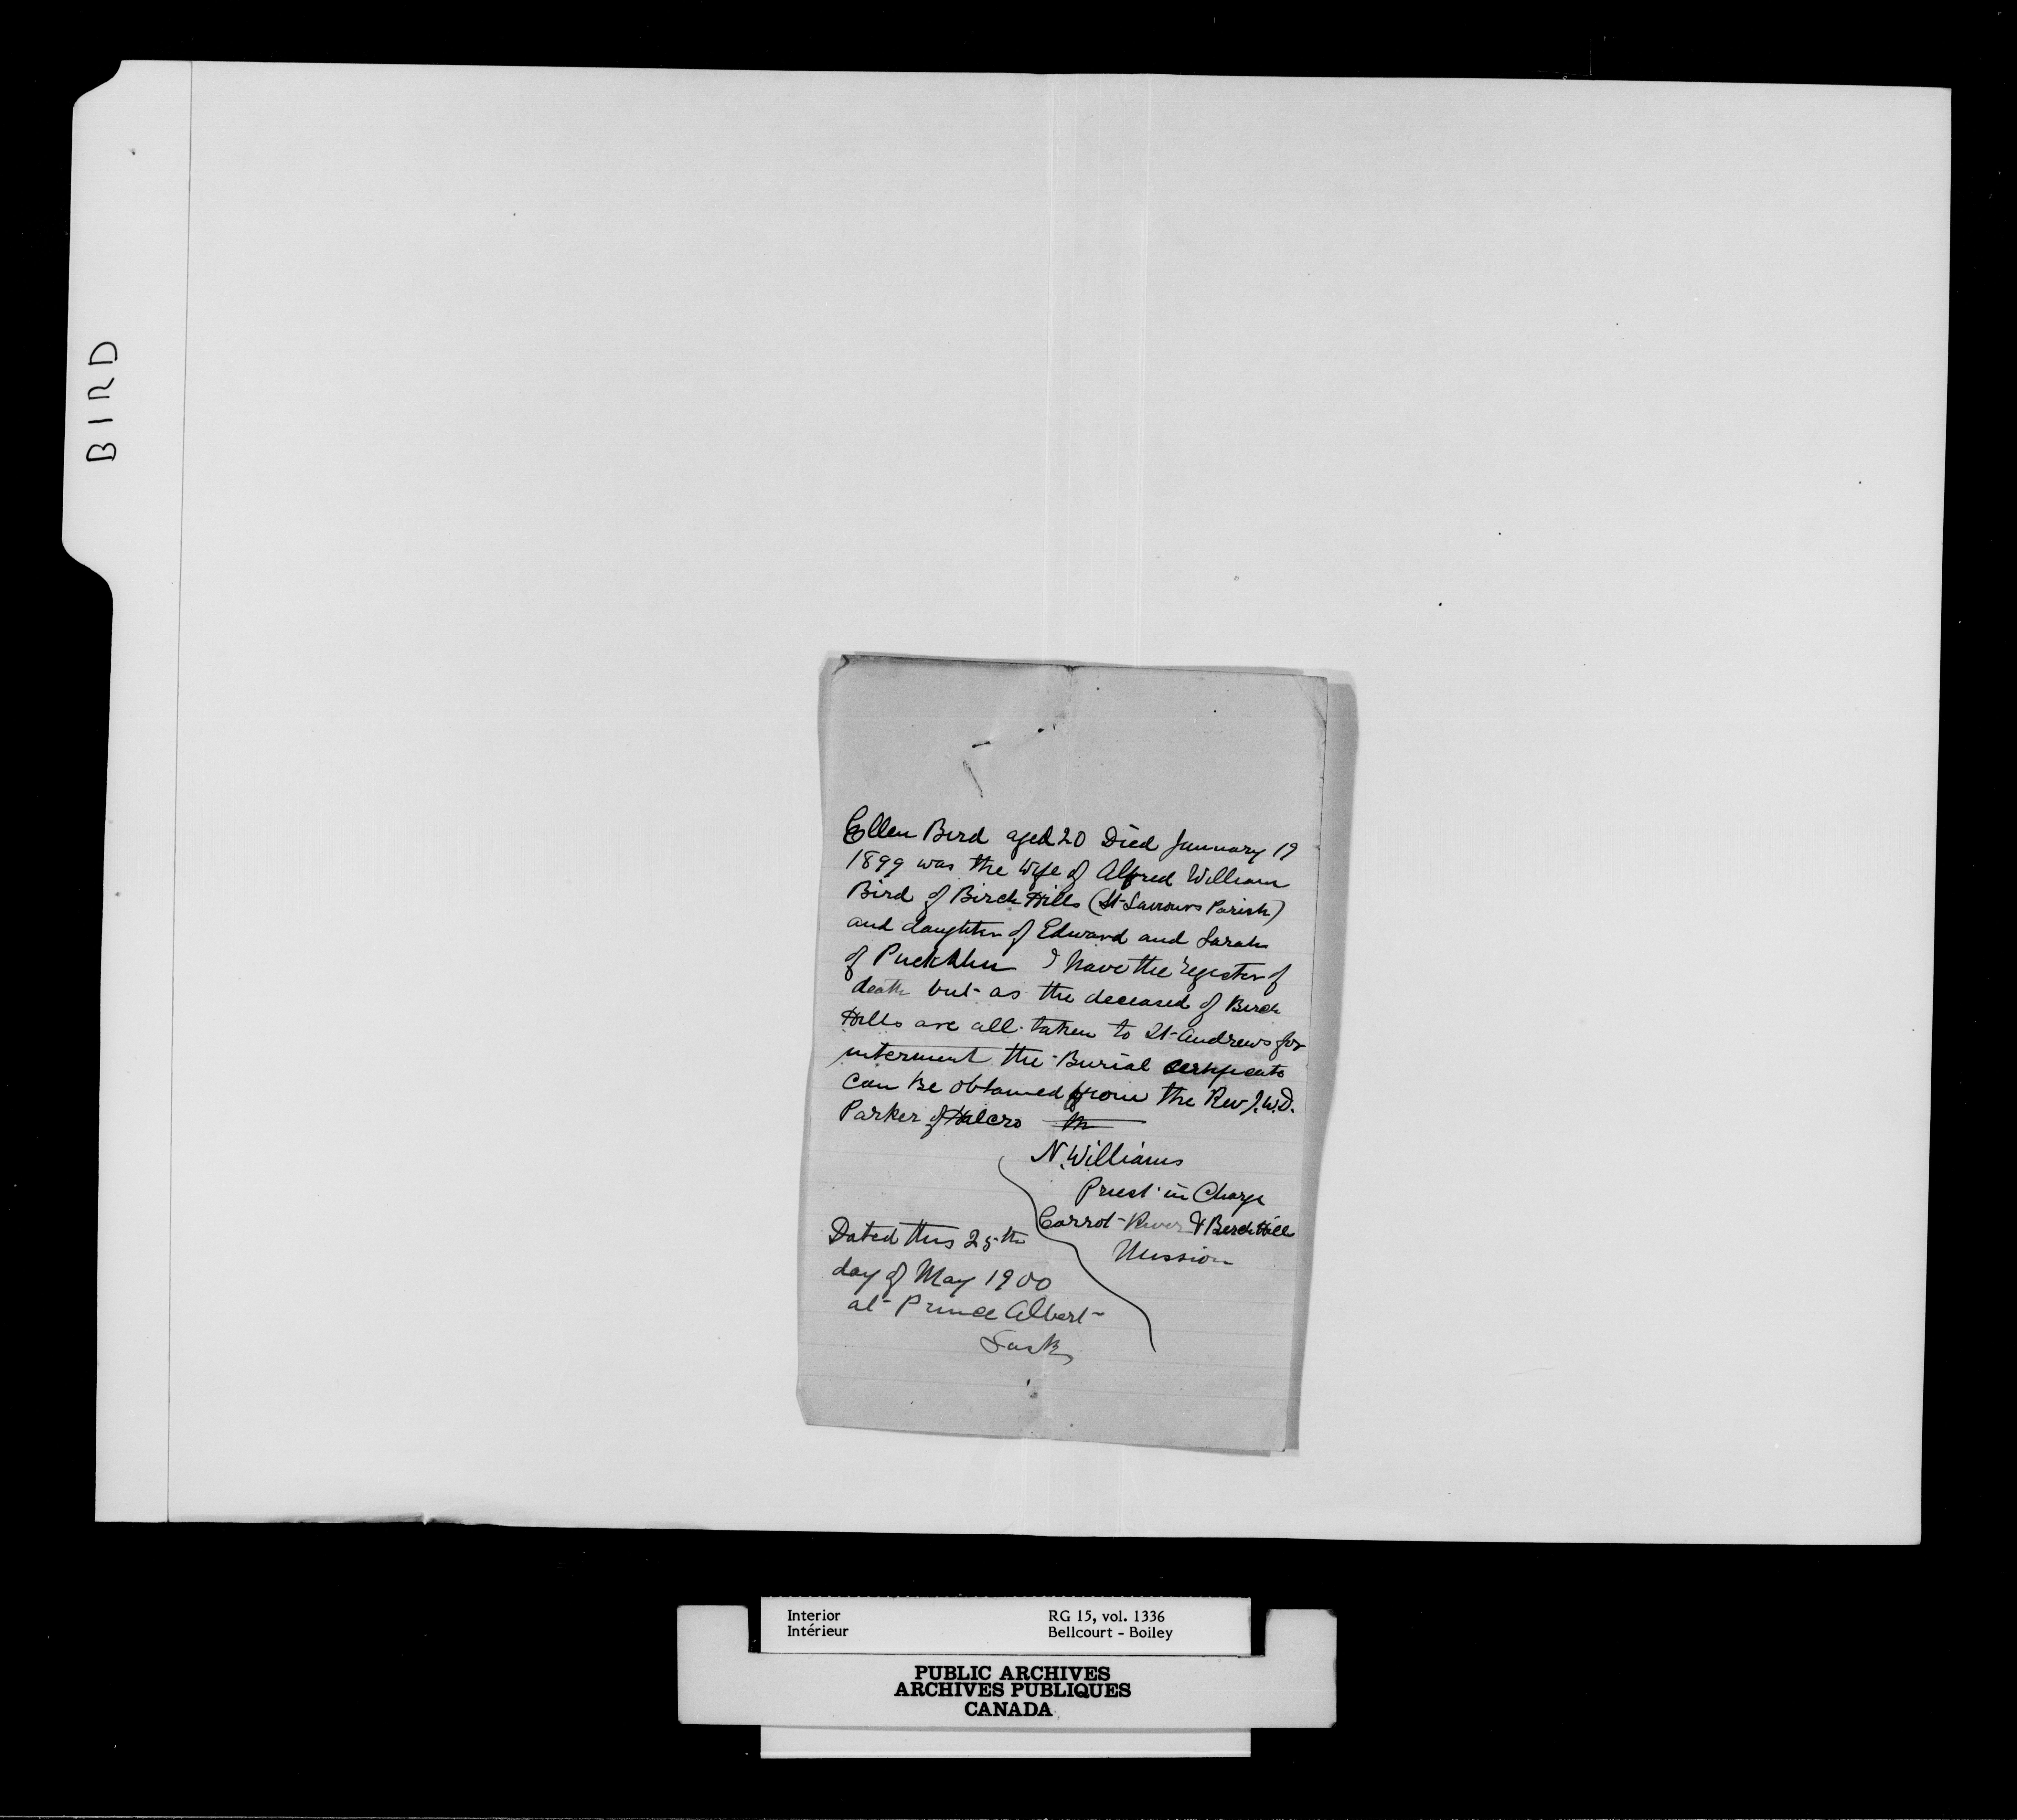 BIRD
Ellen Bird aged 20 Died January 19
1899 was the wife of Alfred William
Bird of Birch Hills (St Saviours Parish)
and daughter of Edward and Sarah
of I have the register of
death but as the deceased of Birch
Hills are all taken to St Andrews for
interment the Burial certificate
can be obtained from the Rev J.W.D.
Parker of Halcro
N. Williams
Priest in Charge
Carrot River & Birch Hill
Mission
Dated this 25th
day of May 1900
at Prince Albert
Sask
Interior RG 15, vol. 1336
Intérieur Bellcourt - Boiley
PUBLIC ARCHIVES
ARCHIVES PUBLIQUES
CANADA